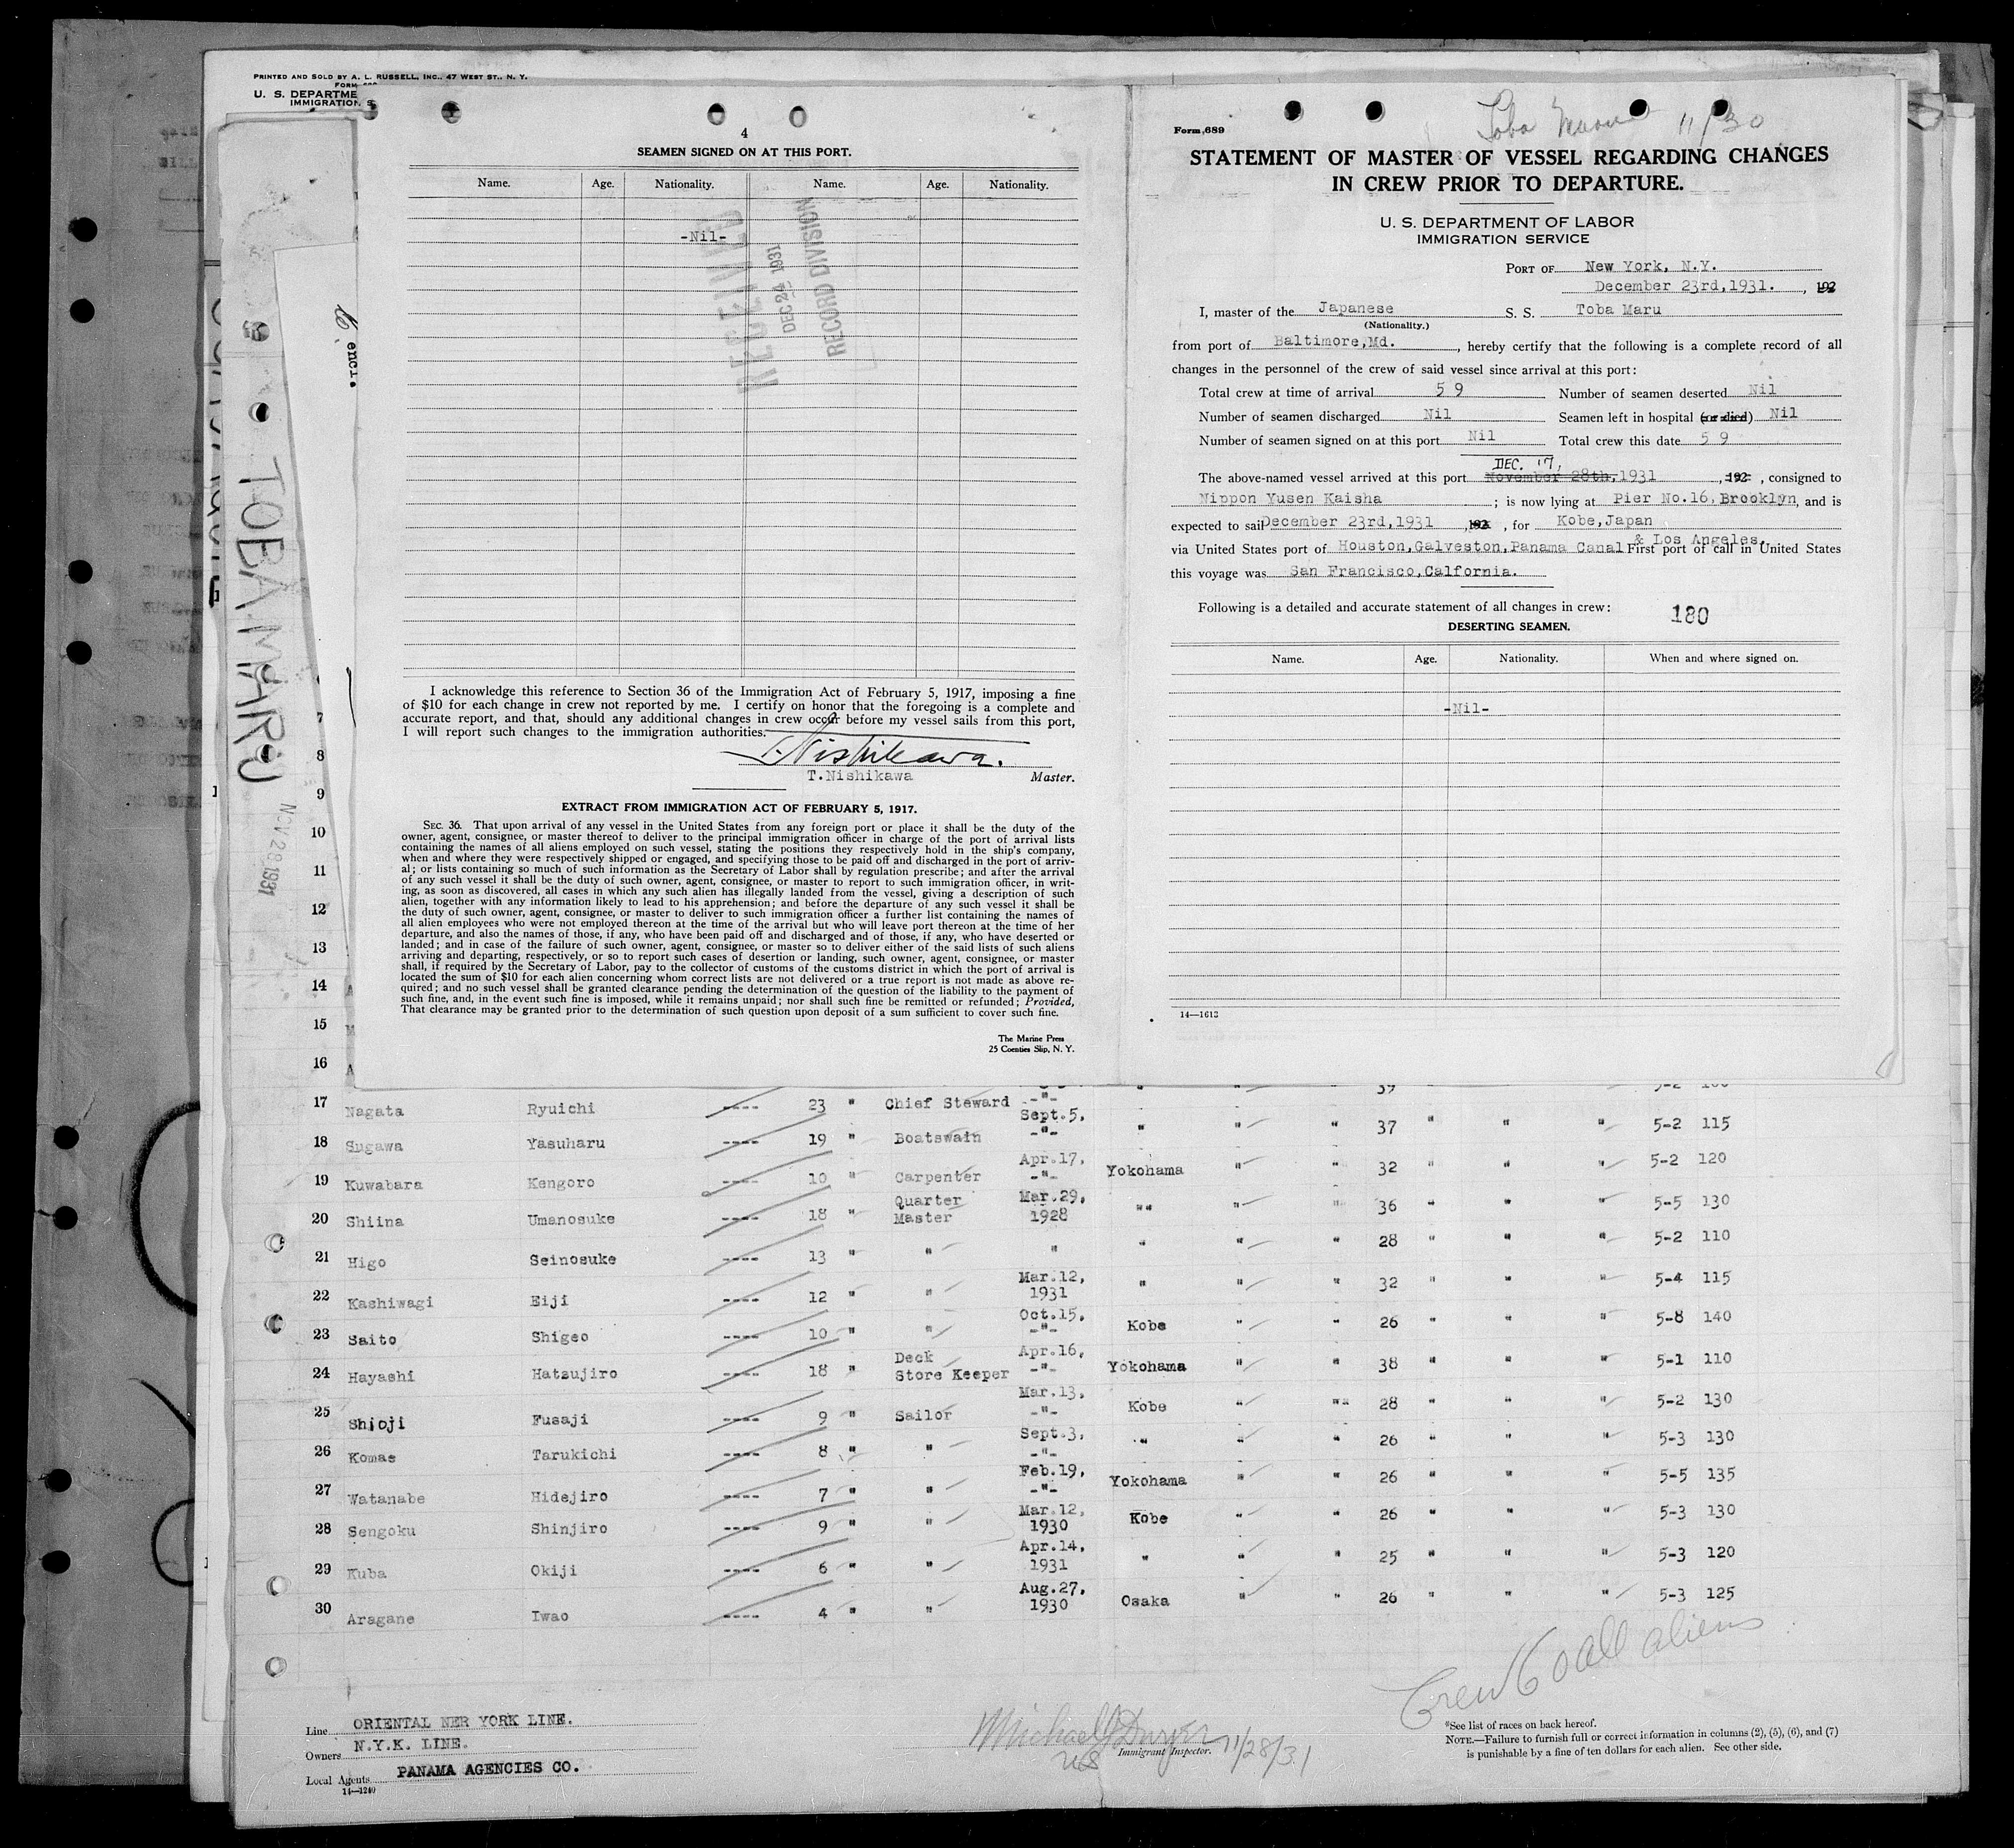 PRINTED AND SOLD BY A. L. RUSSELL, INC., 47 WEST ST., N. Y.
FORM 689
U. S. DEPARTME
IMMIGRATION S
TOBA MARU
NOV 28 1931
encl.
4
SEAMEN SIGNED ON AT THIS PORT.
Name. Age. Nationality. Name. Age. Nationality.
-Nil-
RECEIVED
DEC 24 1931
RECORD DIVISION
I acknowledge this reference to Section 36 of the Immigration Act of February 5, 1917, imposing a fine
of $10 for each change in crew not reported by me. I certify on honor that the foregoing is a complete and
accurate report, and that, should any additional changes in crew occur before my vessel sails from this port,
I will report such changes to the immigration authorities.
T. Nishikawa.
T.Nishikawa Master.
EXTRACT FROM IMMIGRATION ACT OF FEBRUARY 5, 1917.
SEC. 36. That upon arrival of any vessel in the United States from any foreign port or place it shall be the duty of the
owner, agent, consignee, or master thereof to deliver to the principal immigration officer in charge of the port of arrival lists
containing the names of all aliens employed on such vessel, stating the positions they respectively hold in the ship's company,
when and where they were respectively shipped or engaged, and specifying those to be paid off and discharged in the port of arriv-
al; or lists containing so much of such information as the Secretary of Labor shall by regulation prescribe; and after the arrival
of any such vessel it shall be the duty of such owner, agent, consignee, or master to report to such immigration officer, in writ-
ing, as soon as discovered, all cases in which any such alien has illegally landed from the vessel, giving a description of such
alien, together with any information likely to lead to his apprehension; and before the departure of any such vessel it shall be
the duty of such owner, agent, consignee, or master to deliver to such immigration officer a further list containing the names of
all alien employees who were not employed thereon at the time of the arrival but who will leave port thereon at the time of her
departure, and also the names of those, if any, who have been paid off and discharged and of those, if any, who have deserted or
landed; and in case of the failure of such owner, agent, consignee, or master so to deliver either of the said lists of such aliens
arriving and departing, respectively, or so to report such cases of desertion or landing, such owner, agent, consignee, or master
shall, if required by the Secretary of Labor, pay to the collector of customs of the customs district in which the port of arrival is
located the sum of $10 for each alien concerning whom correct lists are not delivered or a true report is not made as above re-
quired; and no such vessel shall be granted clearance pending the determination of the question of the liability to the payment of
such fine, and, in the event such fine is imposed, while it remains unpaid; nor shall such fine be remitted or refunded; Provided,
That clearance may be granted prior to the determination of such question upon deposit of a sum sufficient to cover such fine.
The Marine Press
25 Coenties Slip, N. Y.
Toba Maru 11/30
Form 689
STATEMENT OF MASTER OF VESSEL REGARDING CHANGES
IN CREW PRIOR TO DEPARTURE.
U. S. DEPARTMENT OF LABOR
IMMIGRATION SERVICE
PORT OF New York, N.Y.
December 23rd,1931. , 192
I, master of the Japanese S. S. Toba Maru
(Nationality.)
from port of Baltimore,Md. , hereby certify that the following is a complete record of all
changes in the personnel of the crew of said vessel since arrival at this port:
Total crew at time of arrival 5 9 Number of seamen deserted Nil
Number of seamen discharged Nil Seamen left in hospital (or died) Nil
Number of seamen signed on at this port Nil Total crew this date 5 9
DEC. 17,
The above-named vessel arrived at this port November 28th,1931 , 192 , consigned to
Nippon Yusen Kaisha ; is now lying at Pier No.16,Brooklyn, and is
expected to sail December 23rd,1931 , 192 , for Kobe,Japan
& Los Angeles.
via United States port of Houston,Galveston,Panama Canal First port of call in United States
this voyage was San Francisco,Calfornia.
Following is a detailed and accurate statement of all changes in crew:
180
DESERTING SEAMEN.
Name. Age. Nationality. When and where signed on.
-Nil-
14—1612
7
8
9
10
11
12
13
14
15
16 39 5-2
17 Nagata Ryuichi ---- 23 " Chief Steward -"- " " " 37 " " " 5-2 115
18 Sugawa Yasuharu ---- 19 " Boatswain Sept.5, -"- Yokohama " " 32 " " " 5-2 120
19 Kuwabara Kengoro ---- 10 " Carpenter Apr.17, -"- "" " " 36 " " " 5-5 130
20 Shiina Umanosuke ---- 18 " Quarter Master Mar.29, 1928 " " " 28 " " " 5-2 110
21 Higo Seinosuke ---- 13 " " " " " " 32 " " " 5-4 115
22 Kashiwagi Eiji ---- 12 " " Mar.12, 1931 Kobe " " 26 " " " 5-8 140
23 Saito Shigeo ---- 10 " " Oct.15, -"- Yokohama " " 38 " " " 5-1 110
24 Hayashi Hatsujiro ---- 18 " Deck Store Keeper Apr.16, -"- Kobe " "" 28 " " " 5-2 130
25 Shioji Fusaji ---- 9 " Sailor Mar.13, -"- " " " 26 " " " 5-3 130
26 Komae Tarukichi ---- 8 " " Sept.3, -"- Yokohama " " 26 " " " 5-5 135
27 Watanabe Hidejiro ---- 7 " " Feb.19, -"- Kobe " " 26 " " " 5-3 130
28 Sengoku Shinjiro ---- 9 " " Mar.12, 1930 " " " 25 " " " 5-3 120
29 Kuba Okiji ---- 6 " " Apr.14, 1931 Osaka " " 26 " " " 5-3 125
30 Aragane Iwao ---- 4 " " Aug.27, 1930
Crew 60 all aliens
Line ORIENTAL NER YORK LINE.
Owners N.Y.K. LINE.
Local Agents PANAMA AGENCIES CO.
14—1240
Michael J Dwyer 11/28/31
US Immigrant Inspector.
*See list of races on back hereof.
NOTE.—Failure to furnish full or correct information in columns (2), (5), (6), and (7)
is punishable by a fine of ten dollars for each alien. See other side.